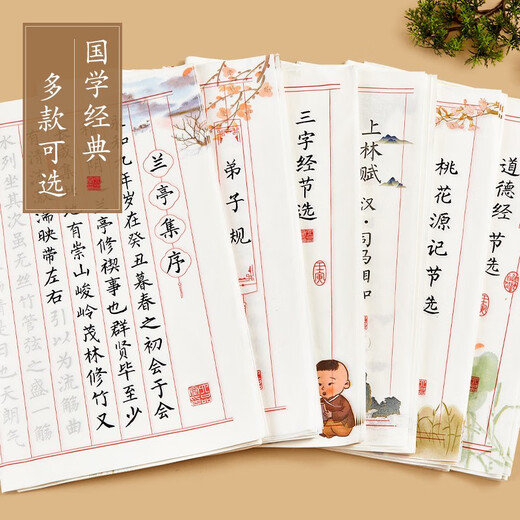 国学经典
多款可选
兰亭集序
和九年岁在癸丑暮春之初会于会
兰亭修禊事也群贤毕至少
有崇山峻岭茂林修竹又
湍映带左右引以为流觞曲
水列坐其次虽无丝竹管弦之盛一觞
日也天朗气
弟子规
三字经节选
壬寅
上林赋
汉·司马相如
桃花源记节选
壬寅
道德经节选